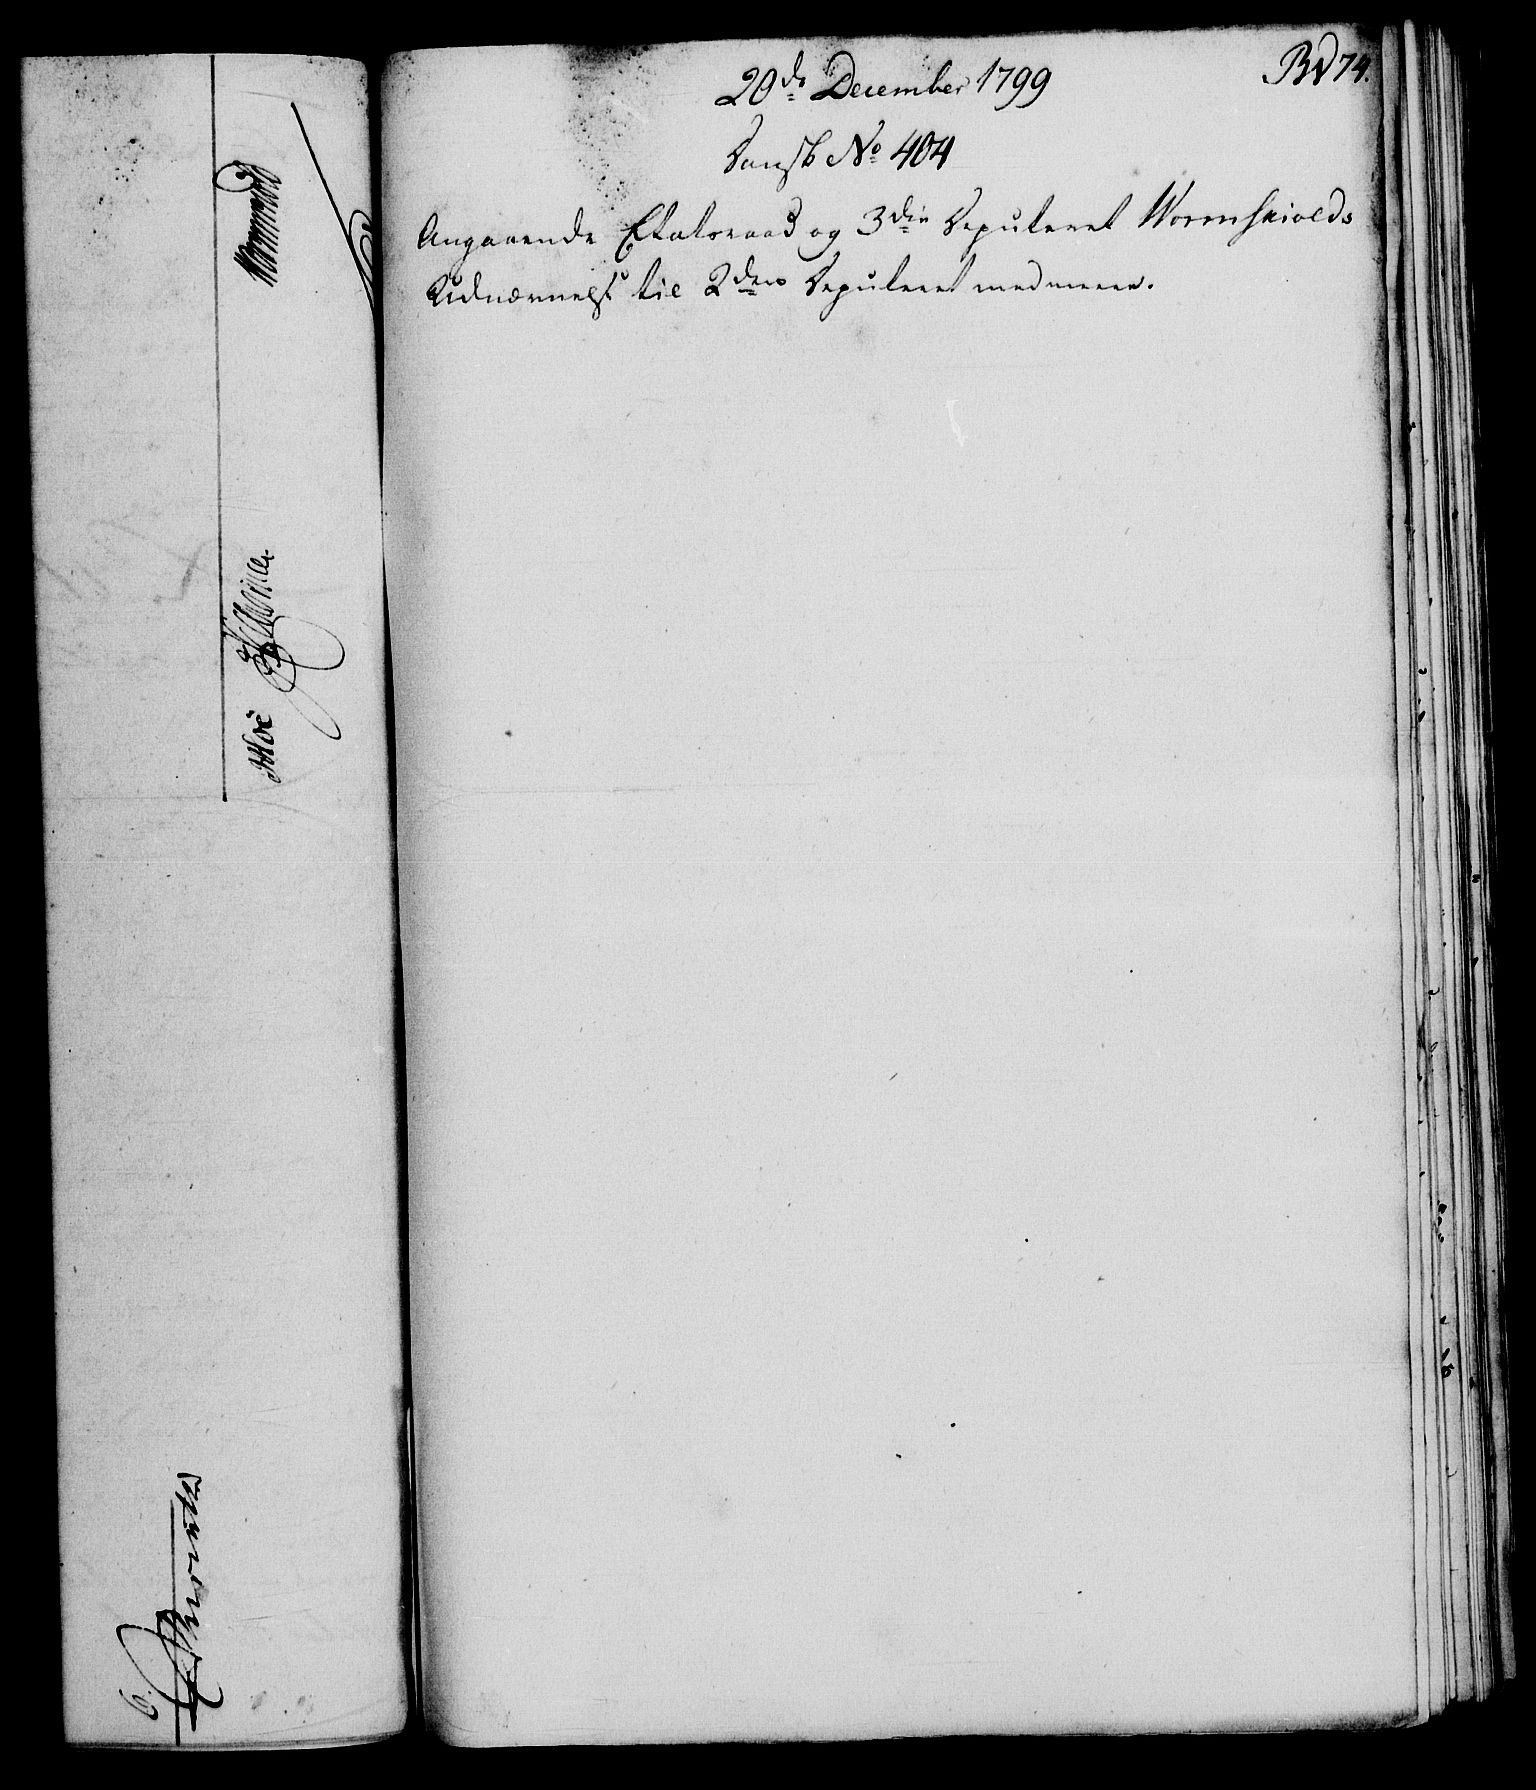 20de December 1799
BN 74.
Dansk No 404
Angaaende Etatsraad og 3die Deputeret Wormskiolds
Udnævnelse til 2den Deputeret med meere.
Moe